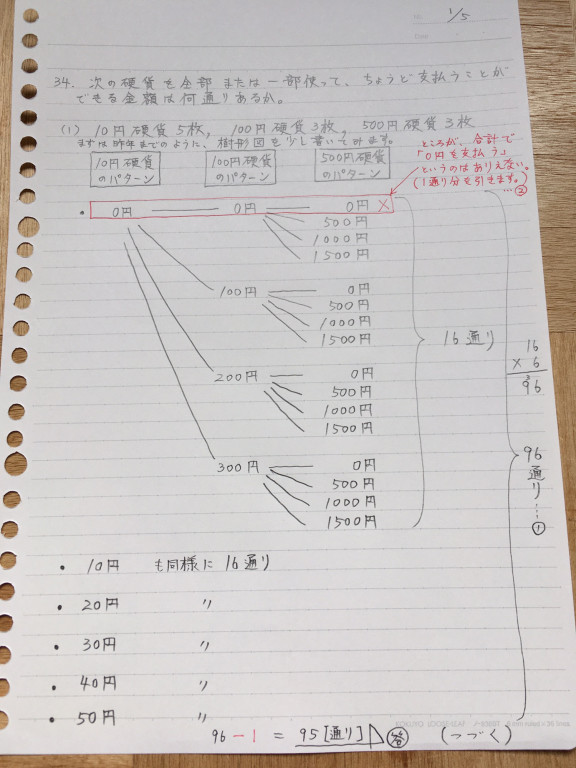 No.
1/5
Date
34. 次の硬貨を全部または一部使って、ちょうど支払うことが
できる金額は何通りあるか。
(1) 10円硬貨5枚, 100円硬貨3枚, 500円硬貨3枚
まずは昨年までのように、樹形図を少し書いてみます。
10円硬貨のパターン 100円硬貨のパターン 500円硬貨のパターン
ところが、合計で
「0円を支払う」
というのはありえない。
(1通り分を引きます。)
…②
• 0円 0円 0円 ×
500円
1000円
1500円
100円 0円
500円
1000円
1500円
16通り
16
× 6
3
96
200円 0円
500円
1000円
1500円
96通り…①
300円 0円
500円
1000円
1500円
• 10円 も同様に 16通り
• 20円 〃
• 30円 〃
• 40円 〃
• 50円 〃
96 − 1 = 95[通り] 答 (つづく)